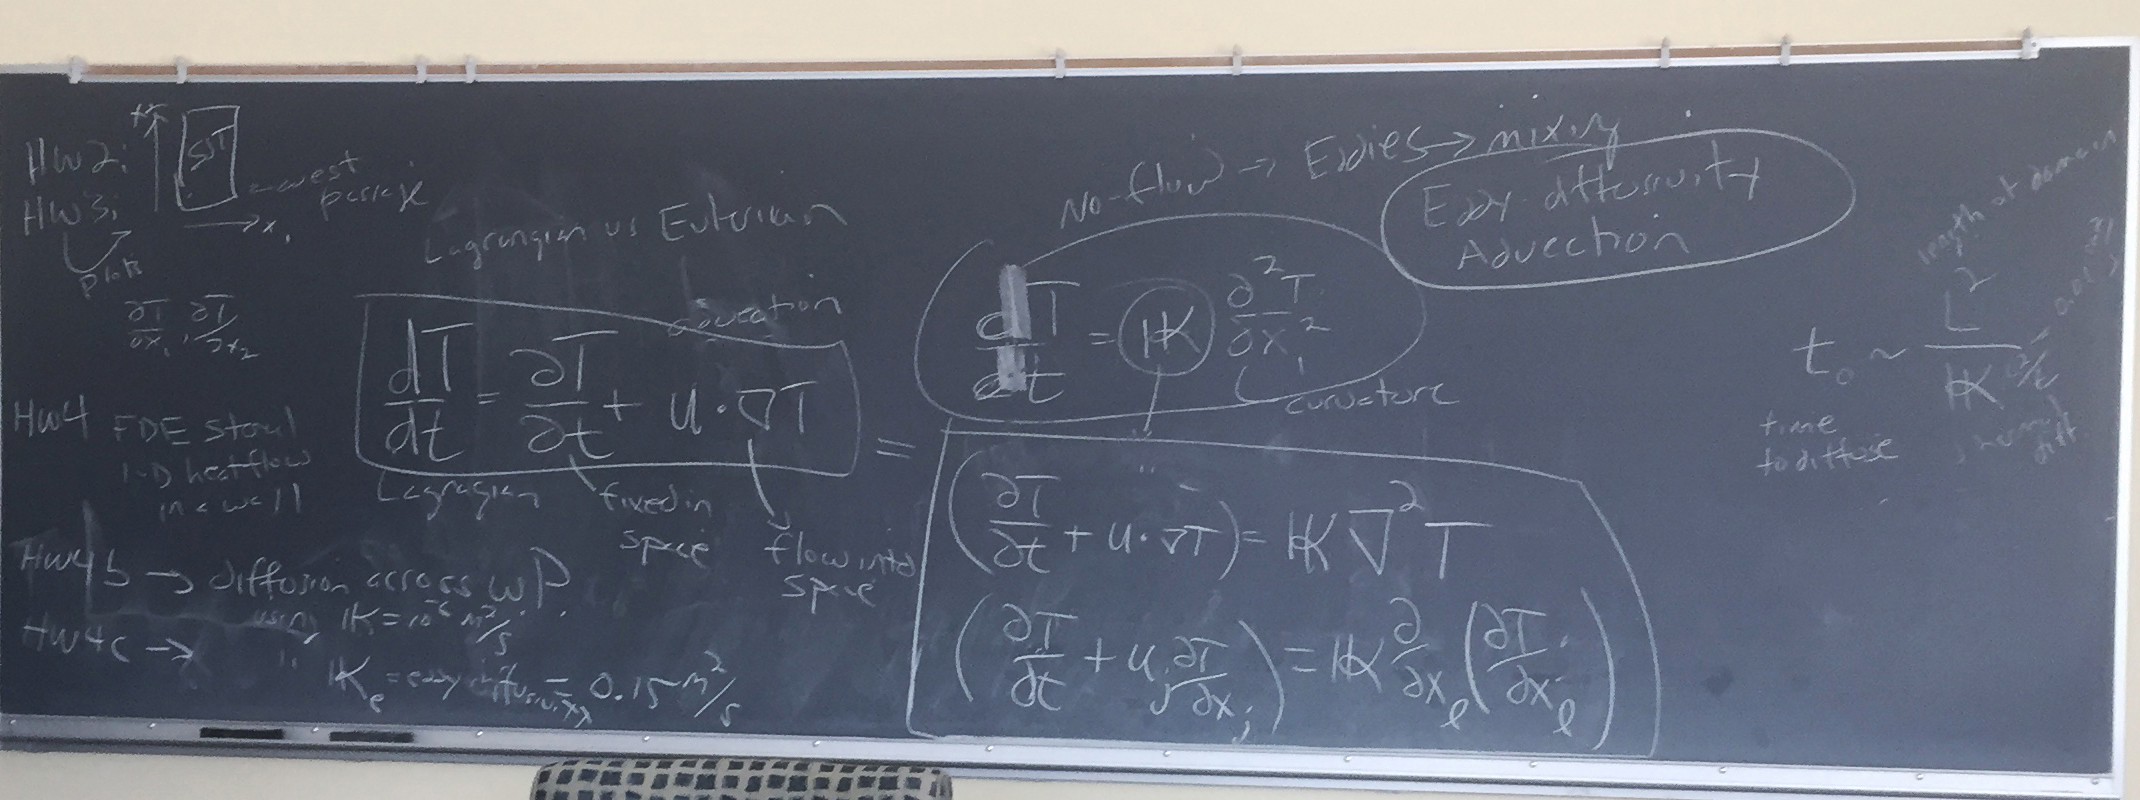 HW2:
HW3:
plots
SST
west
passage
x₁
∂T/∂x₁, ∂T/∂x₂
HW4 FDE
1-D heatflow
in a wall
HW4b → diffusion across WP.
using K=10⁻⁶ m²/s
HW4c → "
Kₑ = eddy diffusivity = 0.15 m²/s
Lagrangian vs Eulerian
advection
dT/dt = ∂T/∂t + u·∇T
Lagragian
fixed in
space
flow into
space
=
No-flow → Eddies → mixing
Eddy-diffusivity
Advection
dT/dt = K ∂²T/∂x₁²
curvature
(∂T/∂t + u·∇T) = K∇²T
(∂T/∂t + uⱼ ∂T/∂xⱼ) = K ∂/∂xₗ (∂T/∂xₗ)
length of domain
t₀ ~ L²/K
time
to diffuse